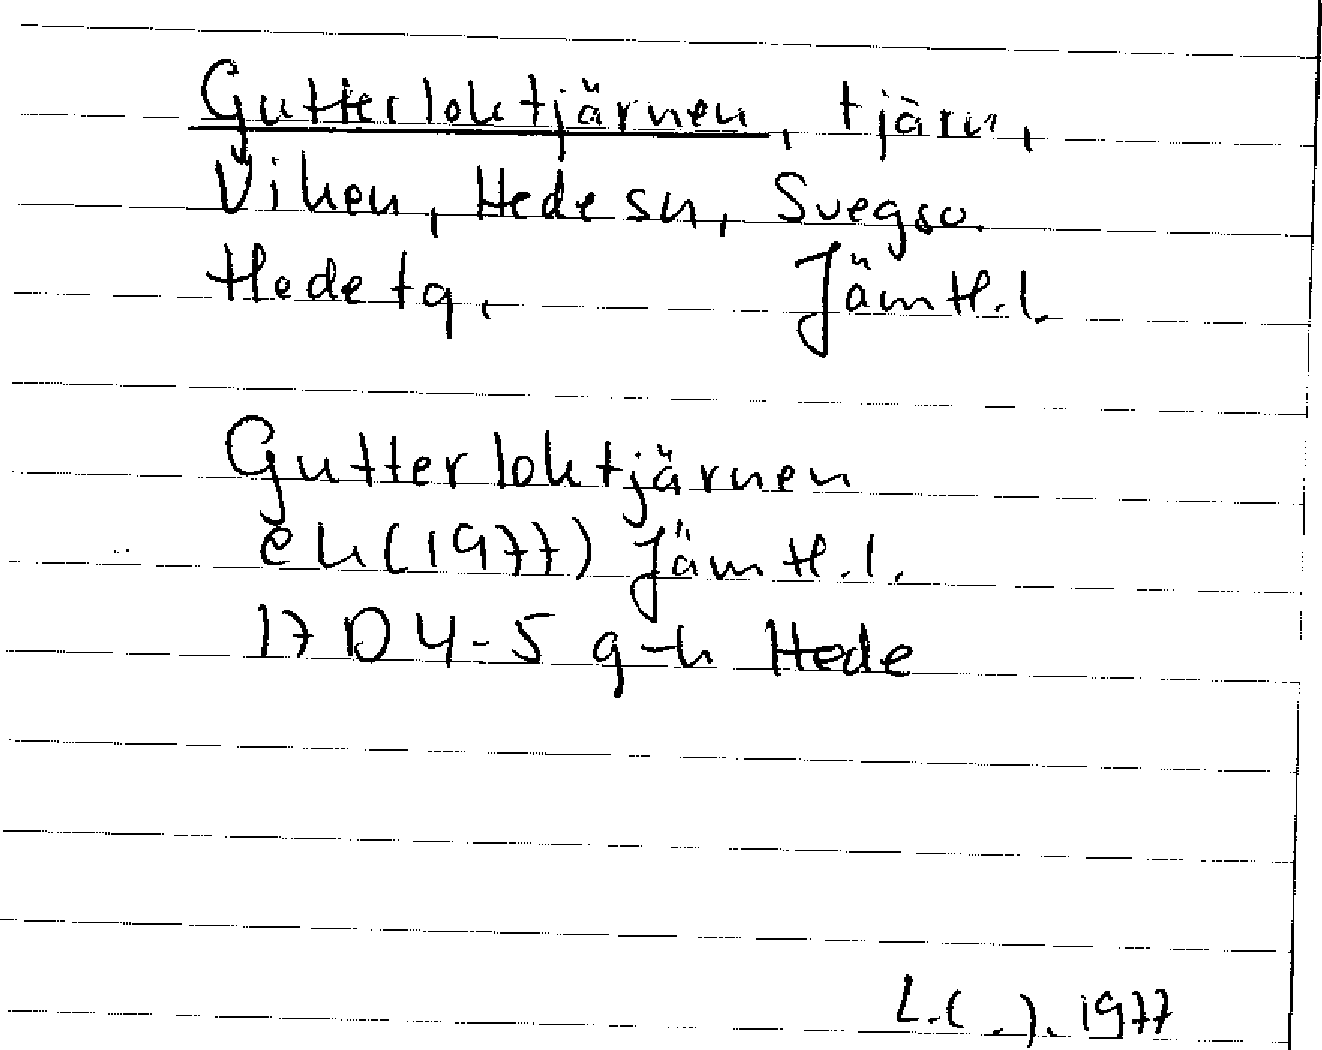 Gutterloktjärnen, tjärn,
Viken, Hede sn, Svegs
Hede tg, Jämtl.l.
Gutterloktjärnen
ek (1977) Jämtl.l.
17 D 4-5 g-h Hede
1977